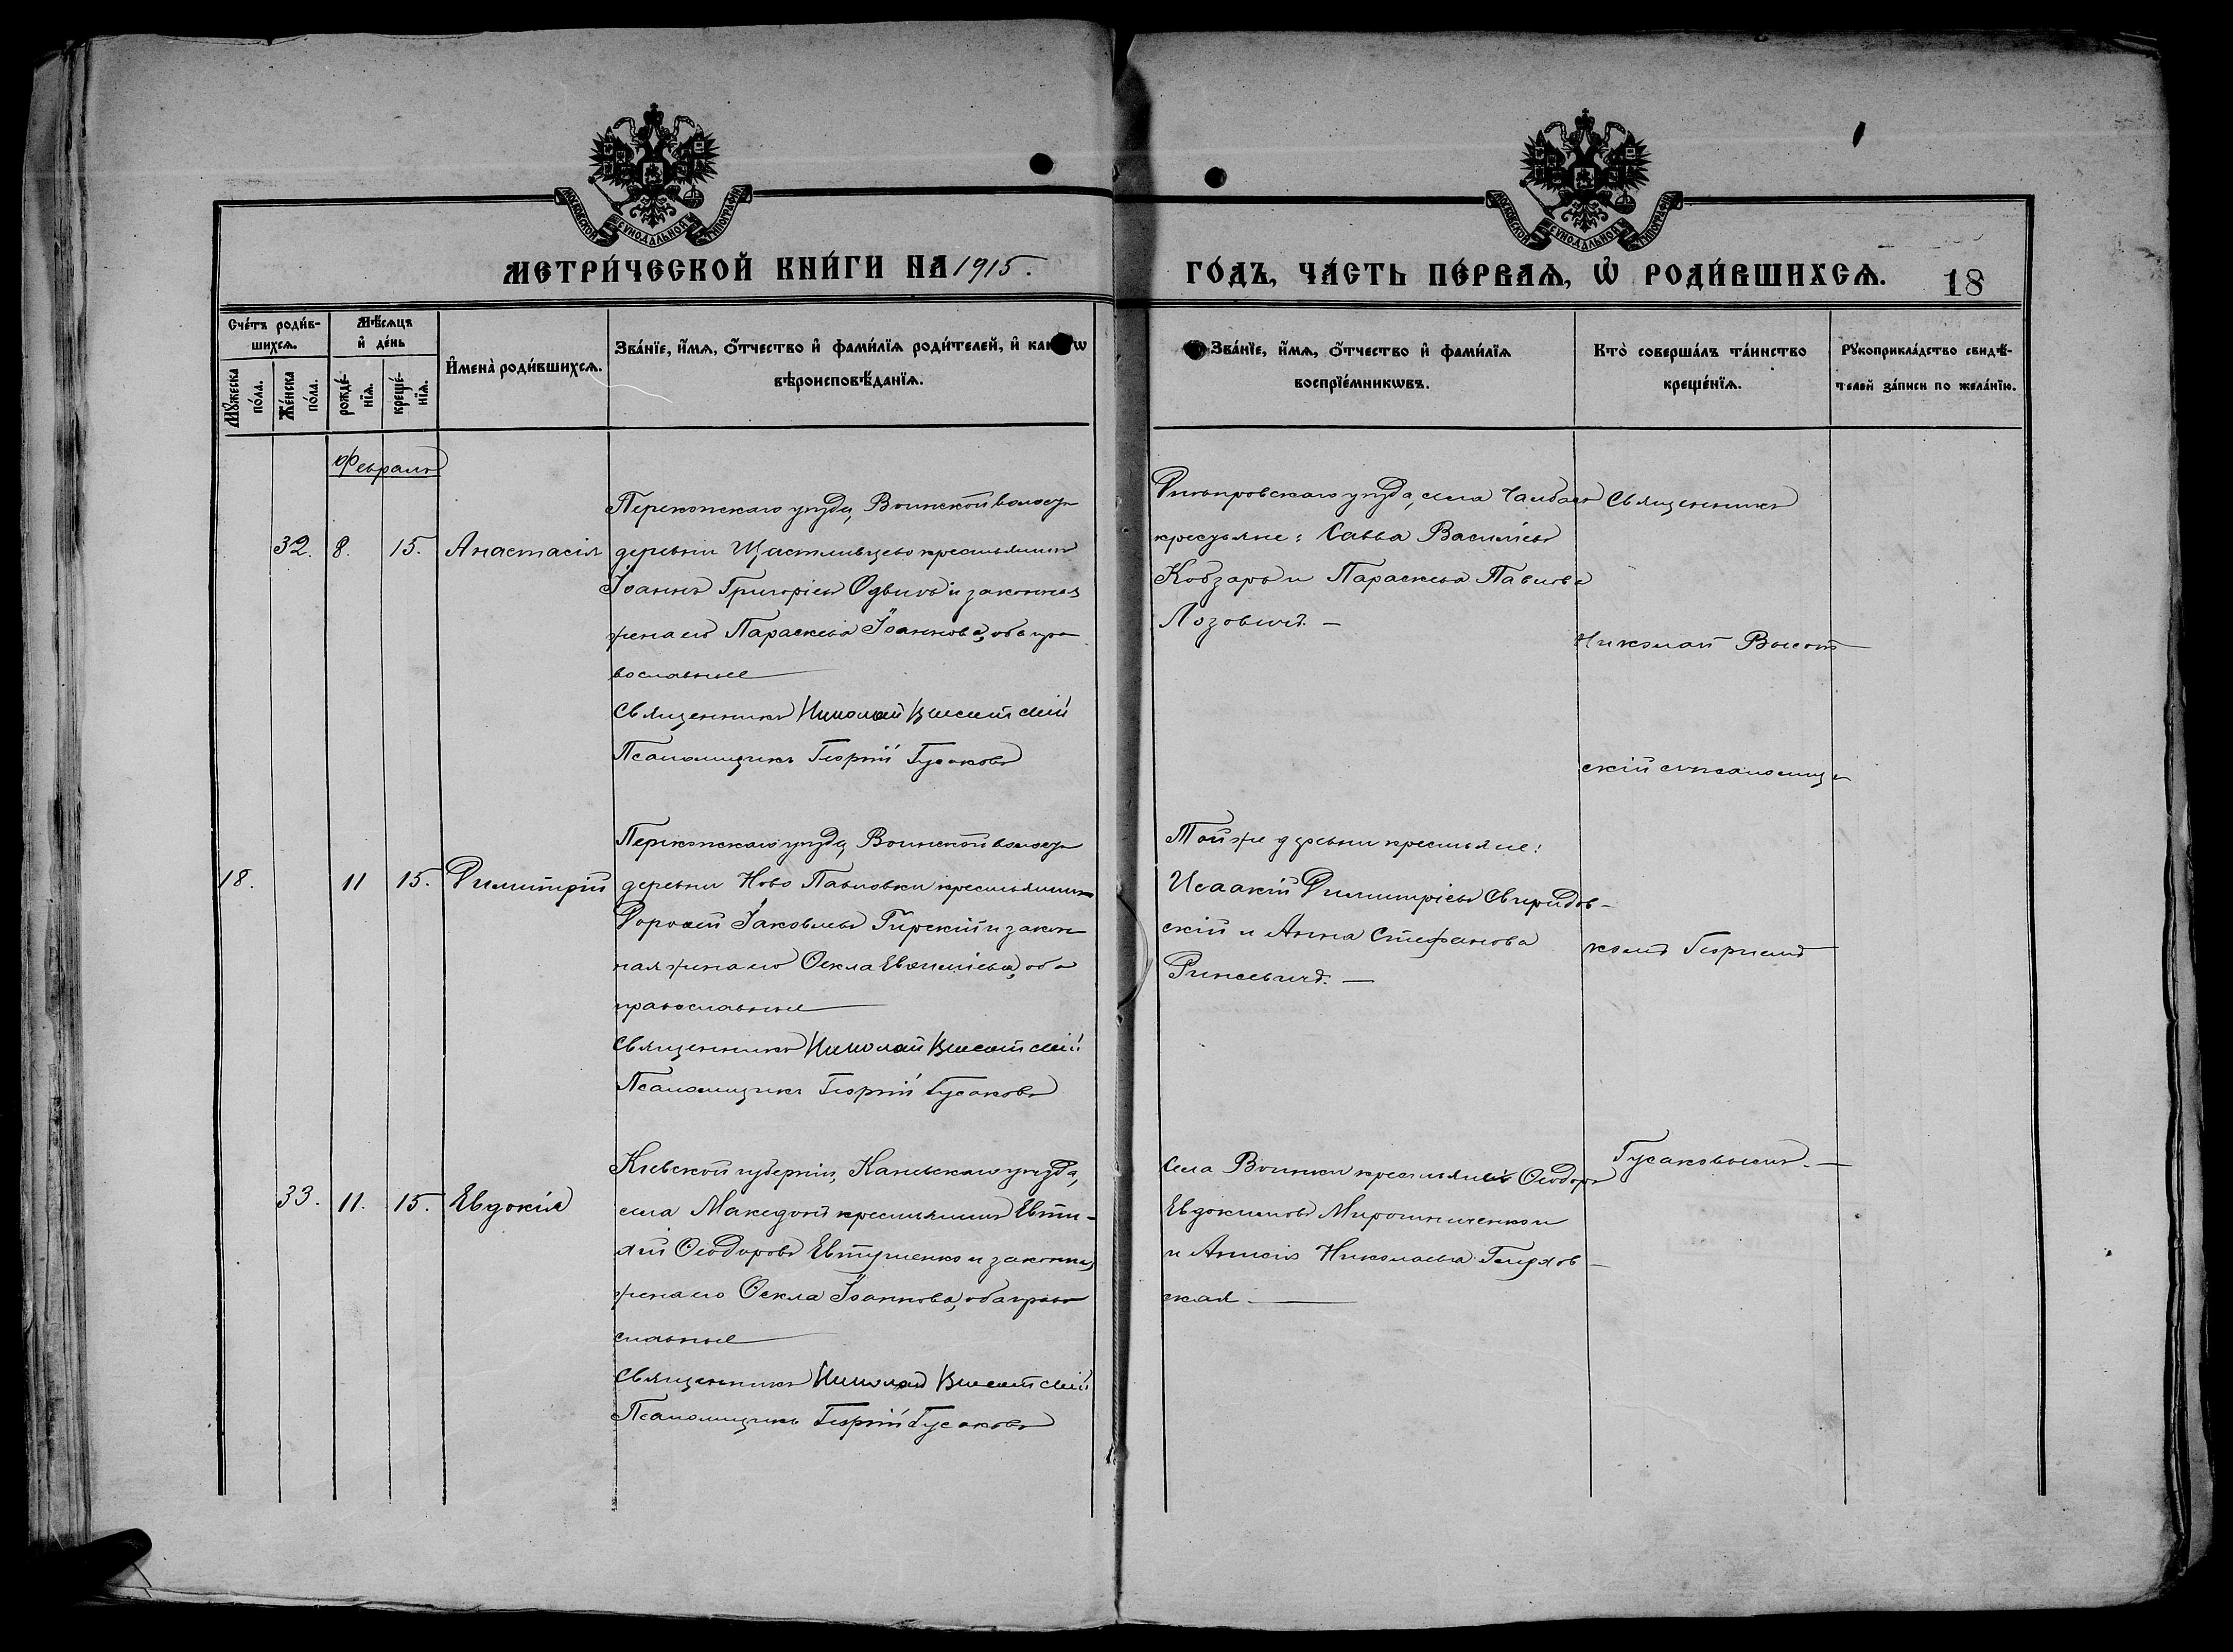 МОСКОВСКОЙ СѴНОДАЛЬНОЙ ТИПОГРАФІИ
МОСКОВСКОЙ СѴНОДАЛЬНОЙ ТИПОГРАФІИ
МЕТРИ́ЧЕСКОЙ КНИ́ГИ НА 1915.
ГО́ДЪ, ЧА́СТЬ ПЕ́РВАѦ, Ѡ҆ РОДИ́ВШИХСѦ.
18
Сче́тъ роди́в-
шихсѧ.
Мꙋ́жеска
по́ла.
Же́нска
по́ла.
Мѣ́сѧцъ
и҆ де́нь
рожде́-
нїѧ.
креще́-
нїѧ.
И҆мена̀ роди́вшихсѧ.
Зва́нїе, и҆́мѧ, ѻ҆́тчество и҆ фами́лїѧ роди́телей, и҆
вѣроисповѣ́данїѧ.
Зва́нїе, и҆́мѧ, ѻ҆́тчество и҆ фами́лїѧ
воспрїе́мникѡвъ.
Кто̀ соверша́лъ та́инство
креще́нїѧ.
Рꙋкоприкла́дство свидѣ́-
телей за́писи по жела́нїю.
Февраль
32. 8. 15. Анастасія
Перекопскаго уѣзда, Воинской волости
деревни Щастливцево крестьянинъ
Іоаннъ Григоріевъ и законная
жена его Параскева Іоаннова, оба пра
вославные
Священникъ Николай Высотскій
Псаломщикъ Георгій Гусаковъ
Днѣпровскаго уѣзда, села Чалбасъ
крестьяне: Савва Василіевъ
Кобзарь и Параскева Павлова
Лозовичъ. —
18. 11 15. Димитрій
Перекопскаго уѣзда, Воинской волости
деревни Ново Павловки крестьянинъ
Дороѳей Іаковлевъ Гирскій и закон
ная жена его Ѳекла оба
православные
Священникъ Николай Высотскій
Псаломщикъ Георгій Гусаковъ
Той же деревни крестьяне:
Исаакій Димитріевъ Свиридов-
скій и Анна Стефанова
33. 11. 15. Евдокія
Кіевской губерніи, Каневскаго уѣзда,
села Македонъ крестьянинъ Евти-
хій Ѳеодоровъ Евтушенко и законная
жена его Ѳекла Іоаннова, оба право
славные
Священникъ Николай Высотскій
Псаломщикъ Георгій Гусаковъ
Села Воинки крестьяне Ѳеодоръ
Евдокимовъ Мирошниченко и
и Анисія Николаева
ская —
Священникъ
Николай Высот
скій съ псаломщи
комъ Георгіемъ
Гусаковымъ. —